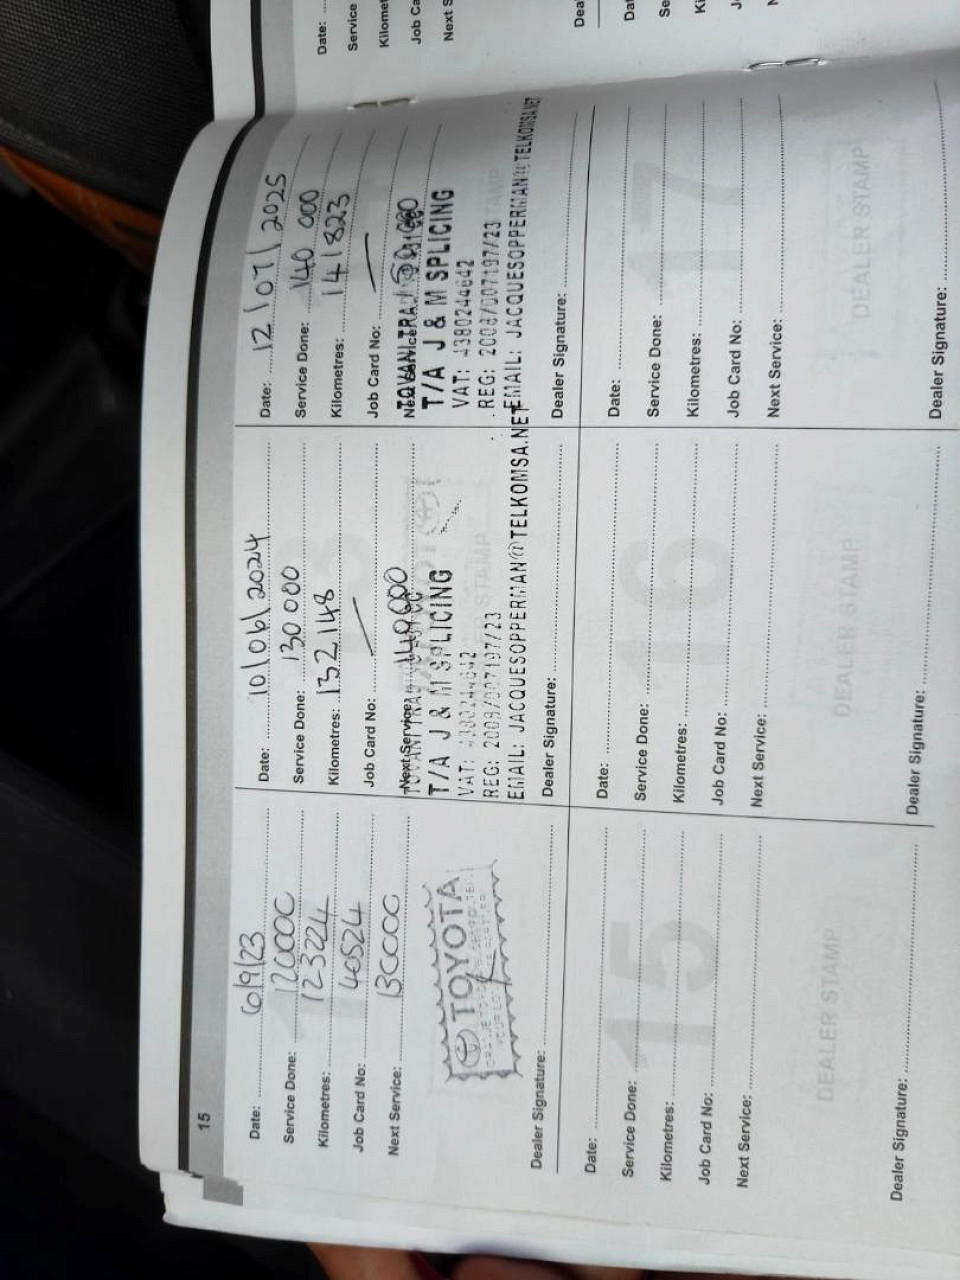 15
Date: 6/9/23
Service Done: 120000
Kilometres: 123224
Job Card No: 40524
Next Service: 130000
TOYOTA
Dealer Signature:
Date: 10/06/2024
Service Done: 130 000
Kilometres: 132 148
Job Card No:
Next Service: 140000
T/A J & M SPLICING
VAT: 4380244642
REG: 2009/007197/23
EMAIL: JACQUESOPPERMAN@TELKOMSA.NET
Dealer Signature:
Date: 12/07/2025
Service Done: 140 000
Kilometres: 141823
Job Card No:
T/A J & M SPLICING
VAT: 4380244642
REG: 2009/007197/23
EMAIL: JACQUESOPPERMAN@TELKOMSA.NET
Dealer Signature:
15
Date:
Service Done:
Kilometres:
Job Card No:
Next Service:
DEALER STAMP
Dealer Signature:
16
Date:
Service Done:
Kilometres:
Job Card No:
Next Service:
DEALER STAMP
Dealer Signature:
17
Date:
Service Done:
Kilometres:
Job Card No:
Next Service:
DEALER STAMP
Dealer Signature:
Date:
Service